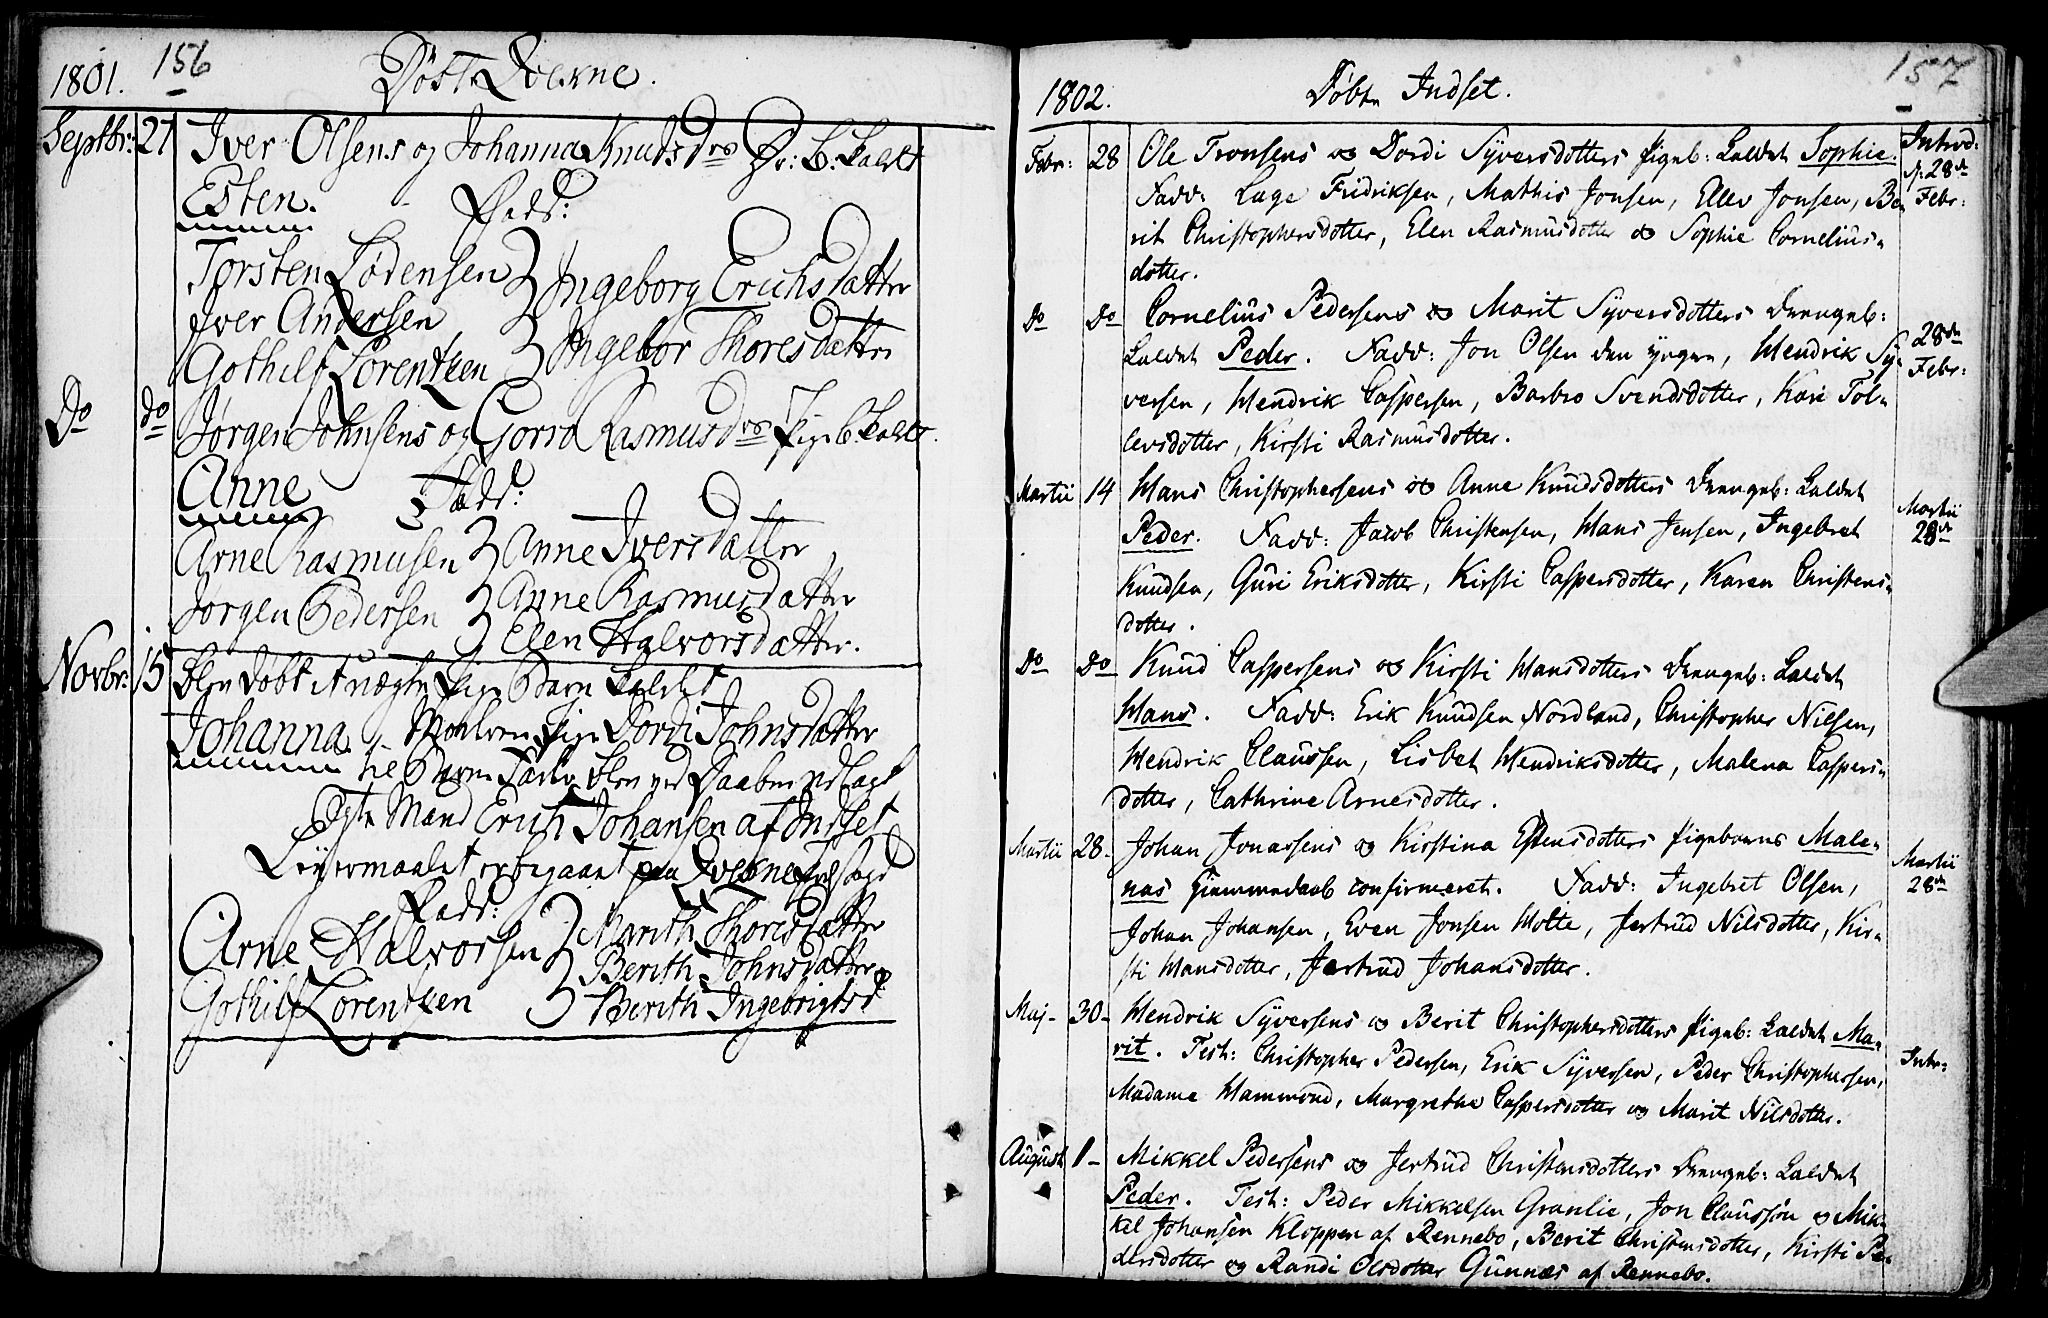 1801. 156 Døbte Qvekne.
Septbr: 27 Iver Olsens og Johanna Knuds Drs Dr: b. kaldet
Esten. Fadd:
Torsten Lodensen Ingeborg Erichsdatter
Iver Andersen
Gothilf Lorentzen Ingebor Thoresdatter
Do do Jørgen Johnsens og Gorro Rasmus Drs Pige b. kaldt.
Anne Fadd:
Arne Rasmusen Anne Iversdatter
Jørgen Pedersen Anne Rasmusdatter
Elen Halvorsdatter.
Novbr: 15 blev døbt et uægte Pige Barn kaldet
Johanna. Moderen Pige Dordi Johnsdatter
til Barne Fader blev ved Daaben udlagt
Egte Mand Erich Johansen af Indset
Leyermaalet er begaaet paa Qvekne
Fadd:
Arne Halvorsen Marith Thoresdatter
Berith Johnsdatter
Gothilf Lorentzen Berith Ingebrigtsd
157
1802. Døbte Indset.
Febr: 28 Ole Tronsens og Dordi Syversdotters Pigeb: kaldet Sophie. Introd:
d: 28de
Fadd: Lage Fridriksen, Mathis Jonsen, Ellev Jonsen, Be- Febr:
rit Christophersdotter, Elen Rasmusdotter og Sophie Cornelius-
dotter.
Do Do Cornelius Pedersens og Marit Syversdotters Drengeb: 28de
kaldet Peder. Fadd: Jon Olsen den yngre, Hendrik Sy- Febr:
versen, Hendrik Caspersen, Barbro Svendsdotter, Kari Tol-
levsdotter, Kirsti Rasmusdotter.
Martii 14 Hans Christophersens og Anne Knudsdotters Drengeb: kaldet Martii
Peder. Fadd: Jacob Christensen, Hans Jensen, Ingebret 28de
Knudsen, Guri Eriksdotter, Kirsti Caspersdotter, Karen Christens-
dotter.
Do Do Knud Caspersens og Kirsti Hansdotters Drengeb: kaldet
Hans. Fadd: Erik Knudsen Nordland, Christopher Nilsen,
Hendrik Claussen, Lisbet Hendriksdotter, Malena Caspers-
dotter, Cathrine Arnesdotter.
Martii 28. Johan Jonassens og Kirstina Estensdotters Pigebarns Male- Martii
nas hiemmedaab confirmeret. Fadd: Ingebret Olsen, 28de
Johan Johansen, Even Jonsen Holte, Jertrud Nilsdotter, Kir-
sti Hansdotter, Jertrud Johansdotter.
Maj- 30- Hendrik Syversens og Berit Christophersdotters Pigeb: kaldet Ma-
rit. Test: Christopher Pedersen, Erik Syversen, Peder Christophersen, Intr:
Madame Hammond, Margrethe Caspersdotter og Marit Nilsdotter.
August 1- Mikkel Pedersens og Jertrud Christensdotters Drengeb: kaldet
Peder. Test: Peder Mikkelsen Granlie, Jon Claussøn og Mik-
kel Johansen Kloppen af Rennebo, Berit Christensdotter, Kirsti Pe-
dersdotter og Randi Olsdotter Gunnes af Rennebo.